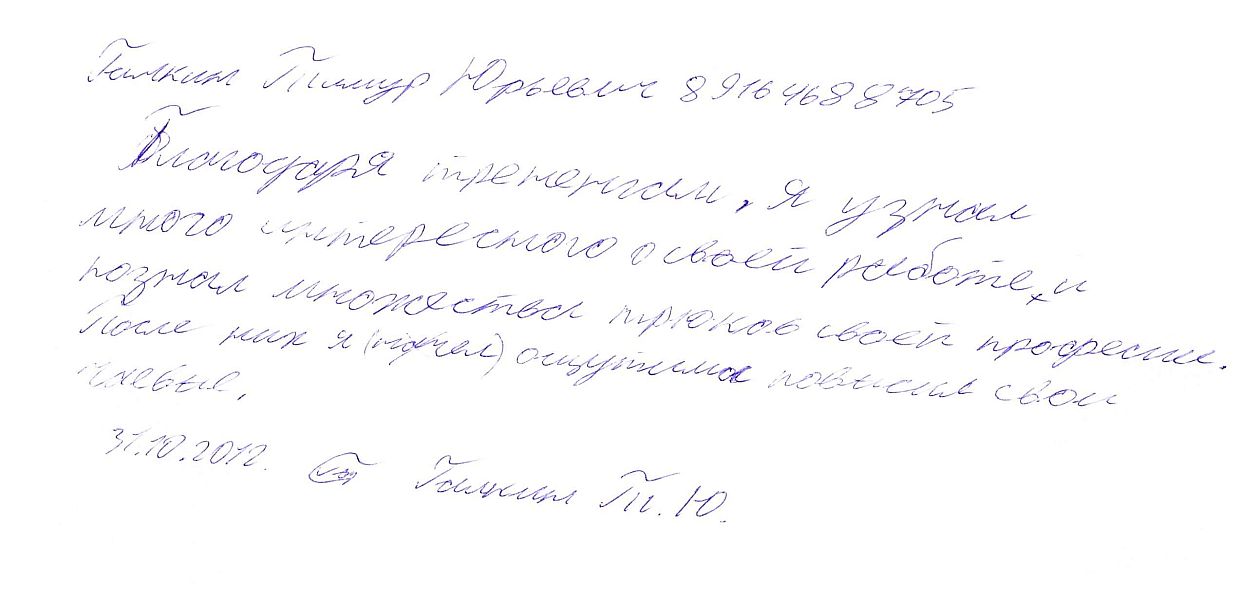 Галкин Тимур Юрьевич 89164688705
Благодаря трененгам, я узнал
много интересного о своей работе, и
познал множества трюков своей професии.
После них я ощутима повысил свои
чаевые.
31.10.2012. Галкин Т.Ю.